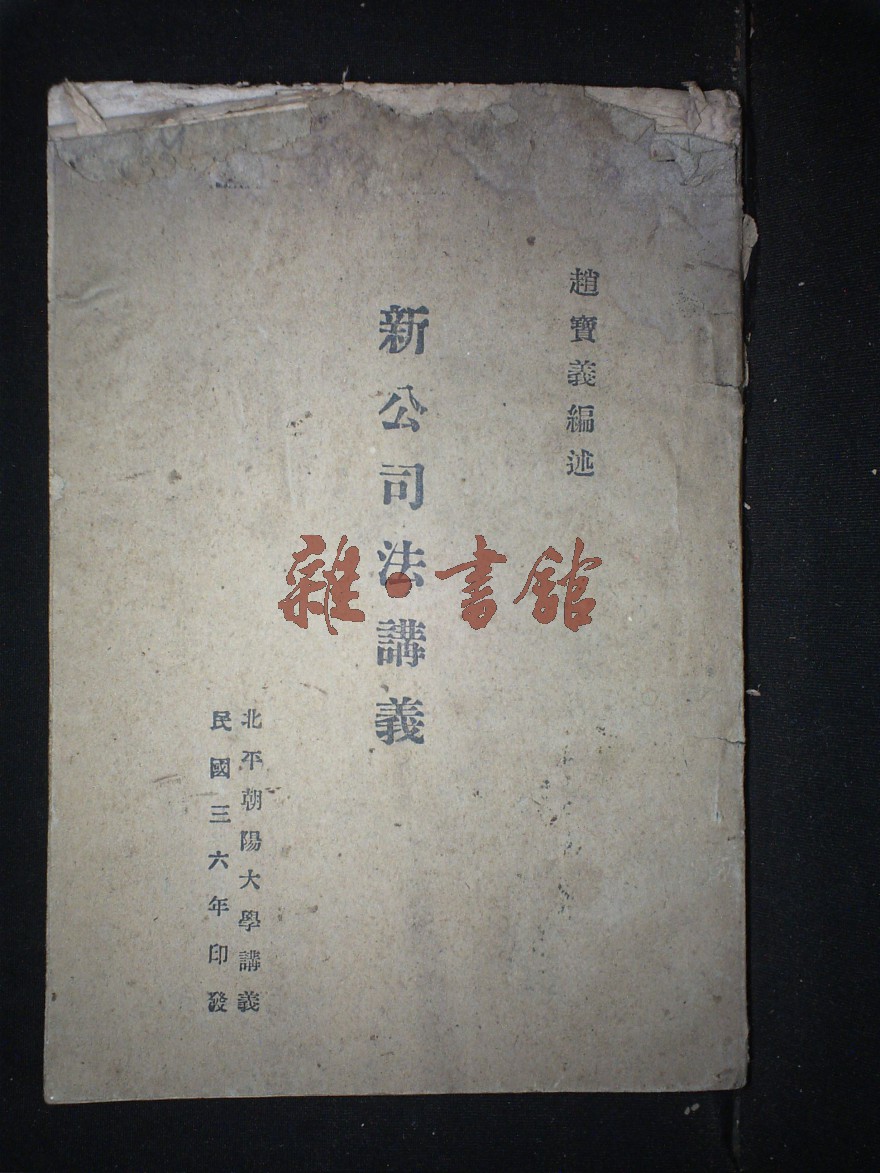 趙寶義編述
新公司法講義
北平朝陽大學講義
民國三六年印發
雜·書館